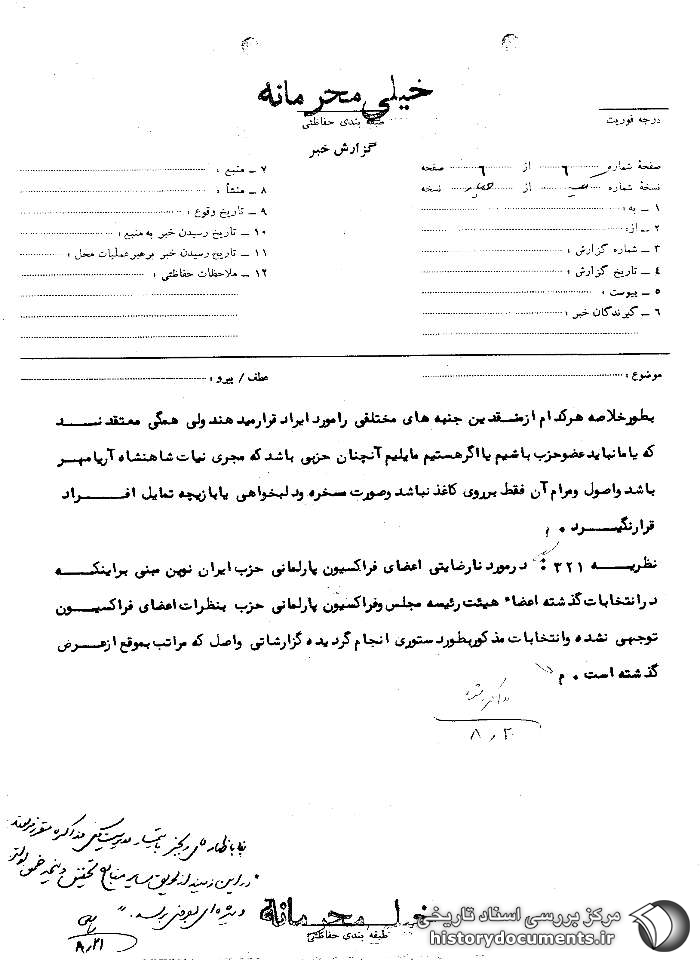 خیلی محرمانه
طبقه بندی حفاظتی
درجه فوریت
گزارش خبر
صفحهٔ شماره ۶ از ۶ صفحه
نسخهٔ شماره از نسخه
۱ - به :
۲ - از :
۳ - شماره گزارش :
۴ - تاریخ گزارش :
۵ - پیوست :
۶ - گیرندگان خبر :
۷ - منبع :
۸ - منشأ :
۹ - تاریخ وقوع :
۱۰ - تاریخ رسیدن خبر به منبع :
۱۱ - تاریخ رسیدن خبر برهبر عملیات محل :
۱۲ - ملاحظات حفاظتی :
موضوع :
عطف / پیرو :
بطورخلاصه هرکدام ازمنقدین جنبه های مختلفی رامورد ایراد قرارمیدهند ولی همگی معتقدند
که یامانباید عضوحزب باشیم یا اگرهستیم مایلیم آنچنان حزبی باشد که مجری نیات شاهنشاه آریامهر
باشد واصول ومرام آن فقط برروی کاغذ نباشد وصورت مسخره ودلبخواهی یابازیچه تمایل افراد
قرارنگیرد . م
نظریه ۳۲۱ : درمورد نارضایتی اعضای فراکسیون پارلمانی حزب ایران نوین مبنی براینکه
درانتخابات گذشته اعضاء هیئت رئیسه مجلس وفراکسیون پارلمانی حزب بنظرات اعضای فراکسیون
توجهی نشده وانتخابات مذکوربطور دستوری انجام گردیده گزارشاتی واصل که مراتب بموقع ازعرض
گذشته است . م
۸/۲۰
در این زمینه از طریق سایر منابع تحقیق و
۸/۲۱
خیلی محرمانه
طبقه بندی حفاظتی
مرکز بررسی اسناد تاریخی
historydocuments.ir